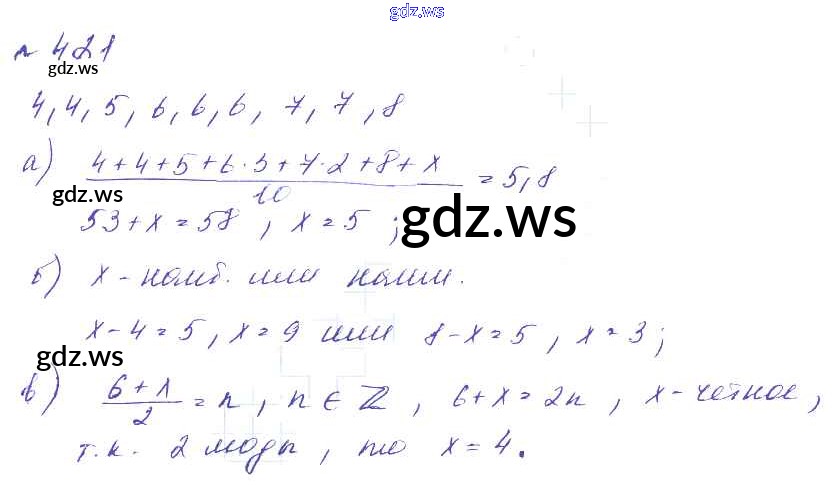 gdz.ws
№ 421
gdz.ws
4, 4, 5, 6, 6, 6, 7, 7, 8
а) (4+4+5+6·3+7·2+8+x)/10 = 5,8
gdz.ws
53+x=58, x=5;
gdz.ws
б) x - наиб. или наим.
x-4=5, x=9 или 8-x=5, x=3;
gdz.ws
в) (6+x)/2 = n, n∈ℤ, 6+x=2n, x-четное,
т.к. 2 моды, то x=4.